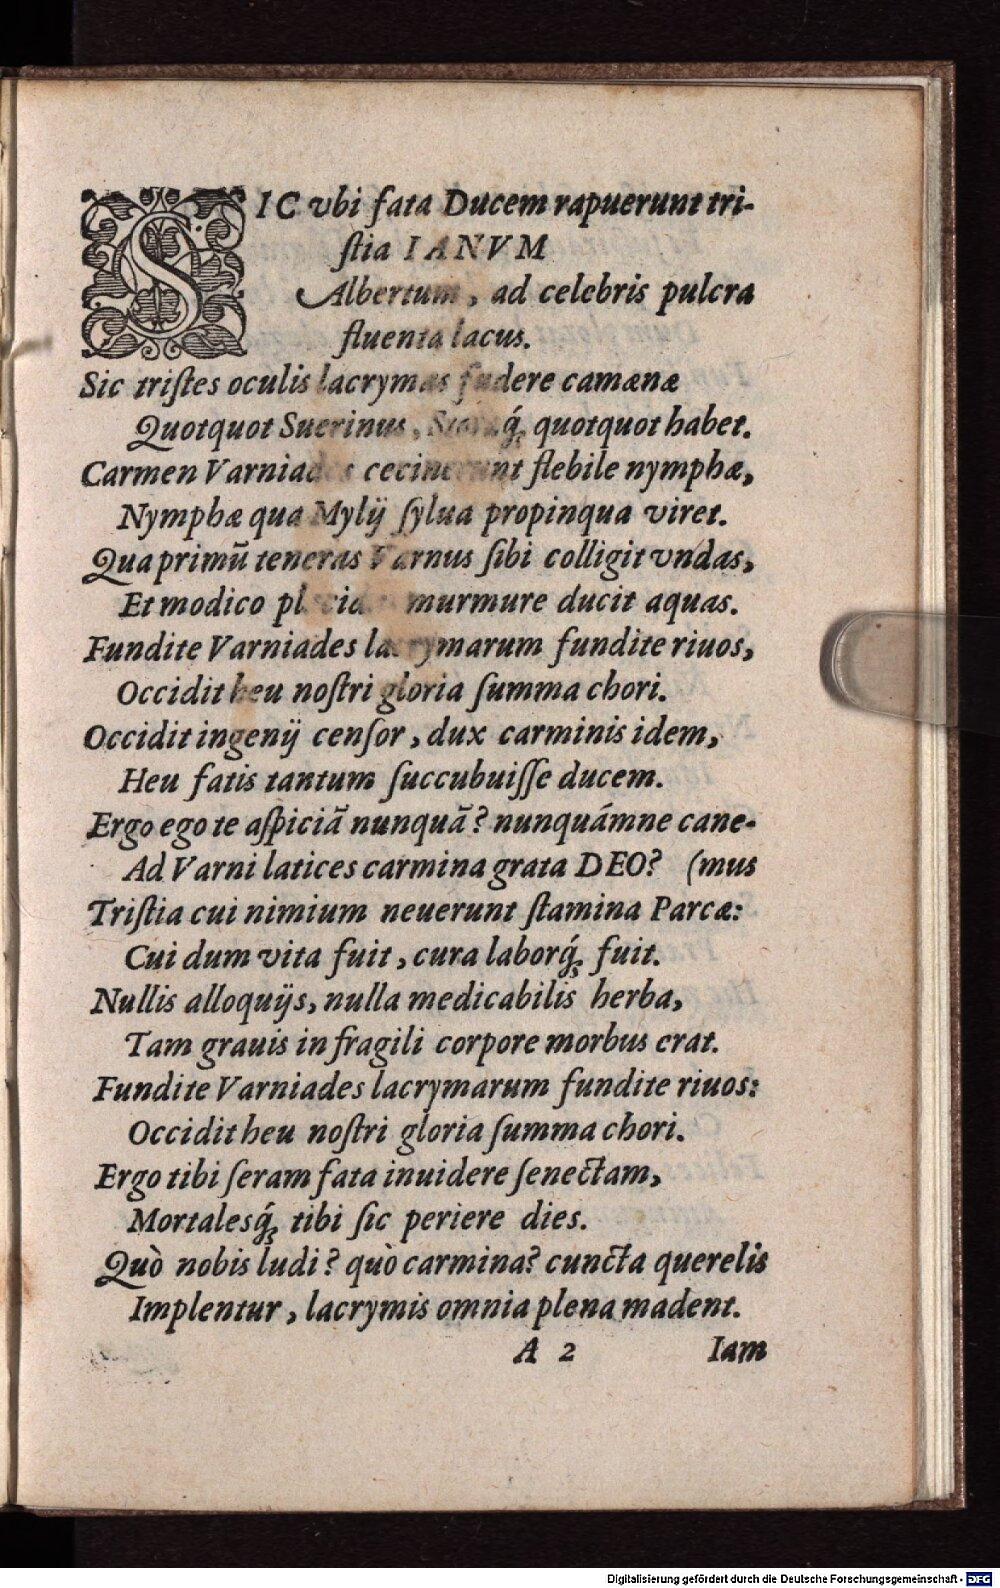 SIC vbi fata Ducem rapuerunt tri-
ſtia IANVM
Albertum, ad celebris pulcra
fluenta lacus.
Sic triſtes oculis lacrymas fudere camænæ
Quotquot Suerinus, quotquot habet.
Carmen Varniades cecinerunt flebile nymphæ,
Nymphæ qua Mylij ſylua propinqua viret.
Qua primū teneras Varnus ſibi colligit vndas,
Et modico murmure ducit aquas.
Fundite Varniades lacrymarum fundite riuos,
Occidit heu noſtri gloria ſumma chori.
Occidit ingenij cenſor, dux carminis idem,
Heu fatis tantum ſuccubuiſſe ducem.
Ergo ego te aſpiciā nunquā? nunquámne cane-
Ad Varni latices carmina grata DEO? (mus
Triſtia cui nimium neuerunt ſtamina Parcæ:
Cui dum vita fuit, cura laborq́; fuit.
Nullis alloquijs, nulla medicabilis herba,
Tam grauis in fragili corpore morbus erat.
Fundite Varniades lacrymarum fundite riuos:
Occidit heu noſtri gloria ſumma chori.
Ergo tibi ſeram fata inuidere ſenectam,
Mortalesq́; tibi ſic periere dies.
Quò nobis ludi? quò carmina? cuncta querelis
Implentur, lacrymis omnia plena madent.
A 2 Iam
Digitalisierung gefördert durch die Deutsche Forschungsgemeinschaft - DFG